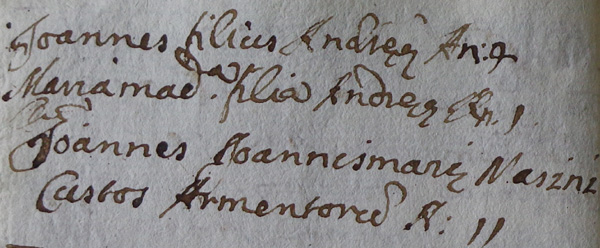 Joannes filius Andreę An: 9
Maria mad.a filia Andreę An. 1
Joannes Joannismarię Masini
Custos Armentorũ A: 11